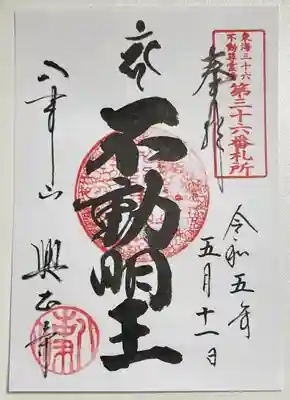 東海三十六
不動尊霊場
第三十六番札所
奉拝
令和五年
五月十一日
不動明王
八事山
興正寺